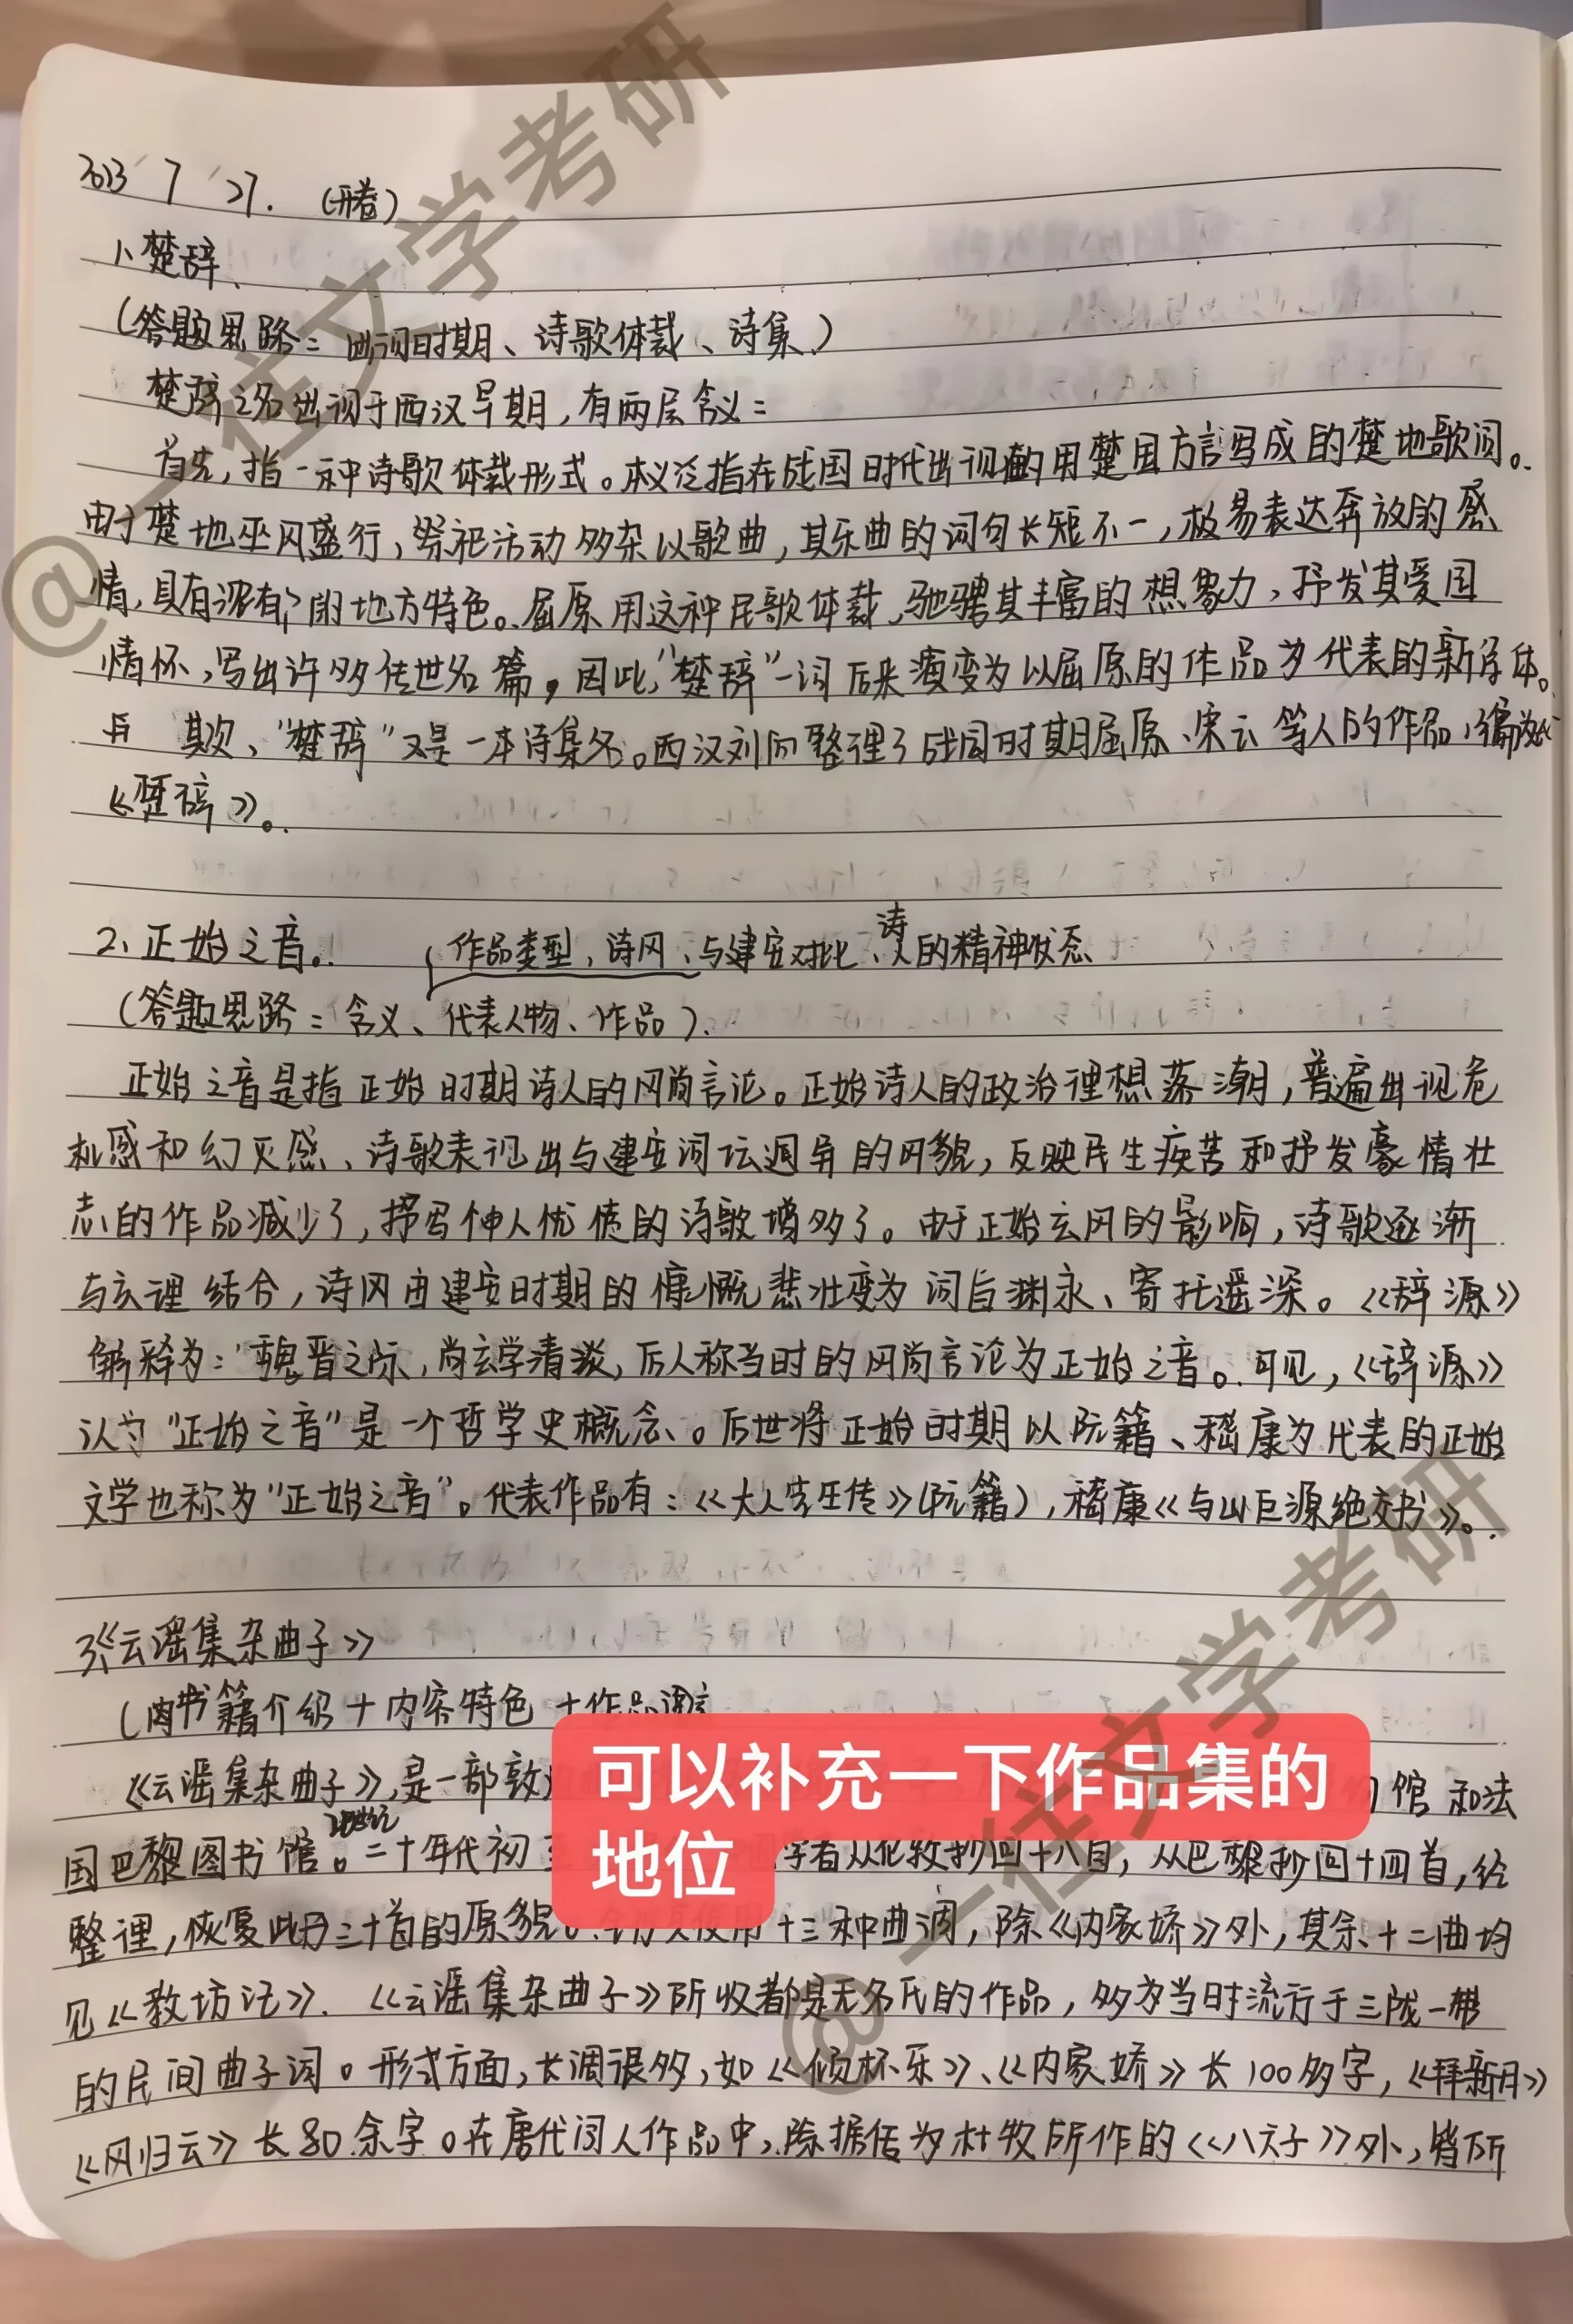 2023 7 27. (开卷)
1、楚辞
(答题思路：出现时期、诗歌体裁、诗集)
楚辞之名出现于西汉早期，有两层含义：
首先，指一种诗歌体裁形式。本义泛指在战国时代出现的用楚国方言写成的楚地歌词。
由于楚地巫风盛行，祭祀活动多杂以歌曲，其乐曲的词句长短不一，极易表达奔放的感
情，具有浓郁的地方特色。屈原用这种民歌体裁，驰骋其丰富的想象力，抒发其爱国
情怀，写出许多传世名篇，因此，“楚辞”一词后来演变为以屈原的作品为代表的新诗体。
其次，“楚辞”又是一本诗集名。西汉刘向整理了战国时期屈原、宋云等人的作品，编为
《楚辞》。
2、正始之音。 作品类型，诗风、与建安对比、诗人的精神状态
(答题思路：含义、代表人物、作品)
正始之音是指正始时期诗人的风尚言论。正始诗人的政治理想落潮，普遍出现危
机感和幻灭感、诗歌表现出与建安词坛迥异的风貌，反映民生疾苦和抒发豪情壮
志的作品减少了，抒写个人忧愤的诗歌增多了。由于正始玄风的影响，诗歌逐渐
与玄理结合，诗风由建安时期的慷慨悲壮变为词旨渊永、寄托遥深。《辞源》
解释为：“魏晋之际，尚玄学清谈，后人称当时的风尚言论为正始之音。可见，《辞源》
认为“正始之音”是一个哲学史概念。后世将正始时期以阮籍、嵇康为代表的正始
文学也称为“正始之音”。代表作品有：《大人先生传》(阮籍)，嵇康《与山巨源绝交书》。
3、《云谣集杂曲子》
(书籍介绍+内容特色+作品
《云谣集杂曲子》，是一部敦 馆和法
国巴黎图书馆。二十年代初 学者从伦敦抄回十八首，从巴黎抄回十四首，经
整理，恢复此三十首的原貌。 使用十三种曲调，除《内家娇》外，其余十二曲均
见《教坊记》. 《云谣集杂曲子》所收都是无名氏的作品，多为当时流行于三陇一带
的民间曲子词。形式方面，长调很多，如《倾杯乐》、《内家娇》长100多字，《拜新月》
《风归云》长80余字。在唐代词人作品中，除据传为杜牧所作的《八六子》外，皆所
可以补充一下作品集的
地位
@一往文学考研
@一往文学考研